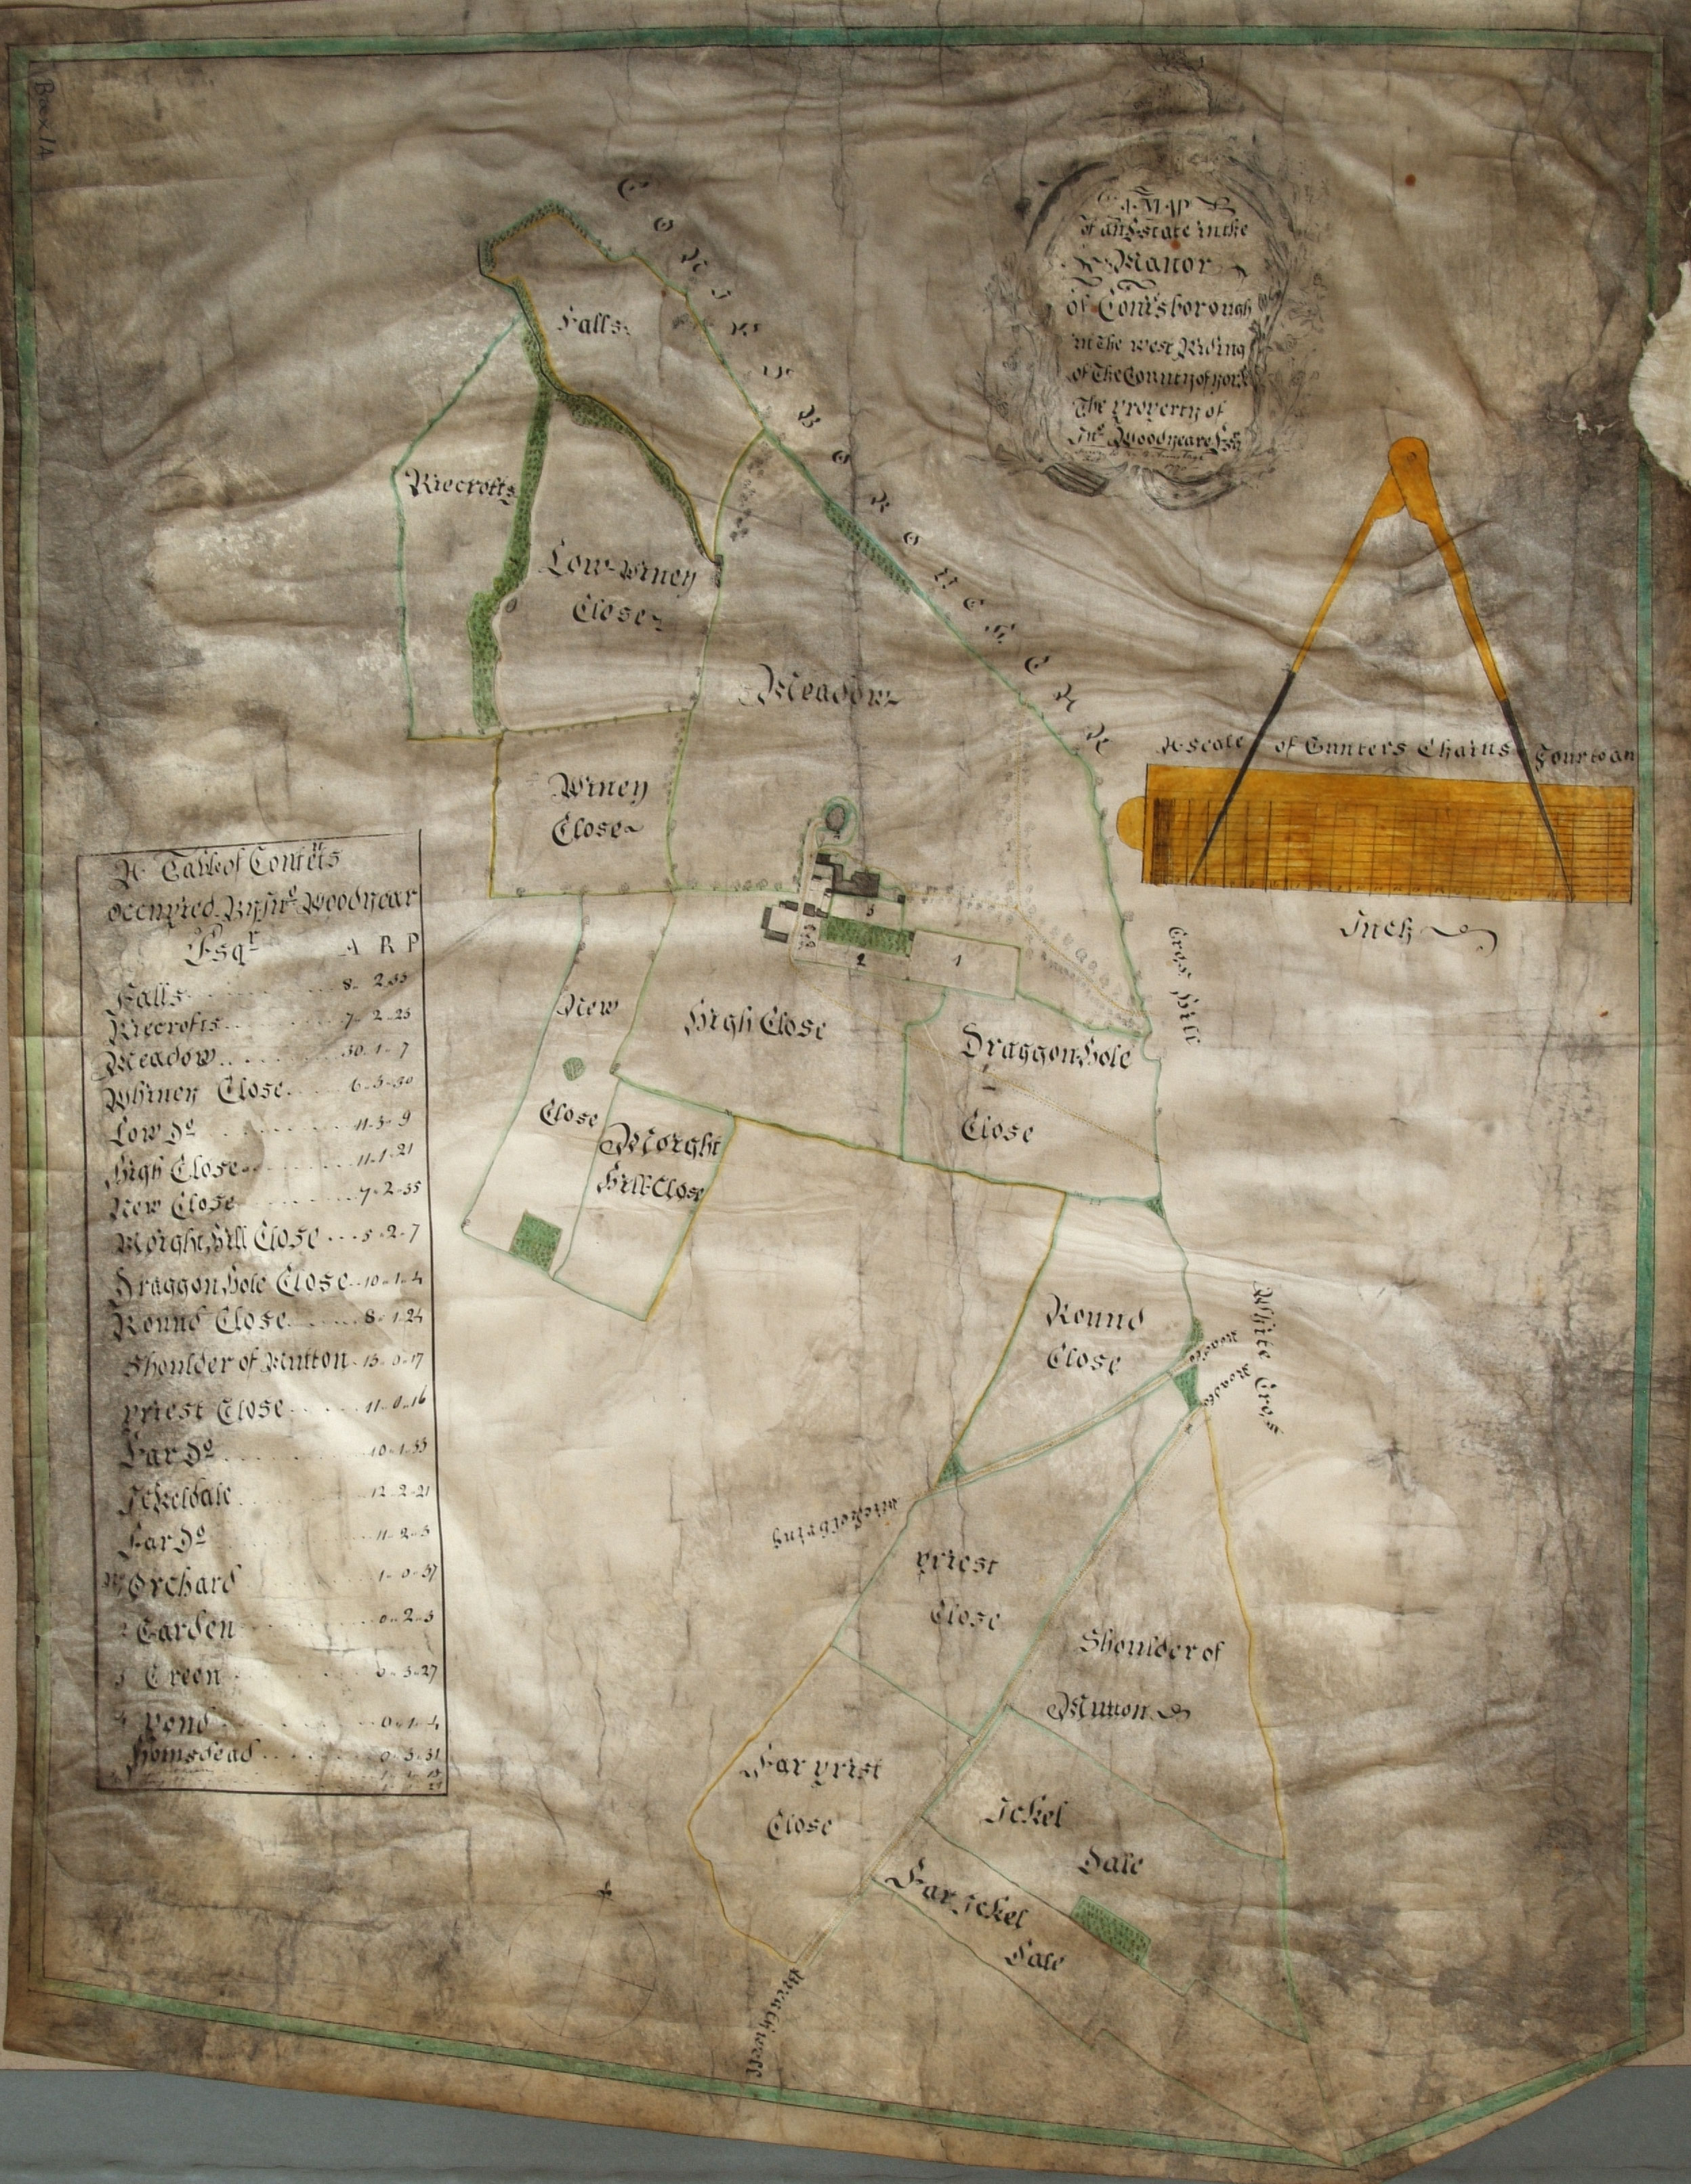 Box 1A
A MAP
of an Estate in the
Manor
of Conisborough
in the west Riding
of The County of york
The property of
Jnº Woodyeare Esqr
CONISBOROUGH PARK
Falls
Riecrofts
Low Winey
Close
Meadow
Winey
Close
A Scale of Gunters Chains Four to an
Inch
A Table of Contets
occupied By Jnº Woodyear
Esqr A R P
Falls 8 2 35
Riecrofts 7 2 25
Meadow 30 1 7
Whiney Close 6 3 30
Low Dº 11 3 9
High Close 11 1 21
New Close 7 2 35
Morght Hill Close 5 2 7
Draggon Hole Close 10 1 4
Round Close 8 1 24
Shoulder of Mutton 13 0 17
priest Close 11 0 16
Far Dº 10 1 33
Ickeldale 12 2 21
Far Dº 11 2 3
Orchard 1 0 37
2 Garden 0 2 3
3 Green 0 3 27
4 pond 0 1 4
Homsdead 0 3 31
3
2
1
Cros Hill
New
Close
High Close
Draggon Hole
Close
Morght
Hill Close
Round
Close
Roads
Roads
White Cros
priest
Close
Shoulder of
Mutton
Far prist
Close
Ickel
Dale
Far Ickel
Dale